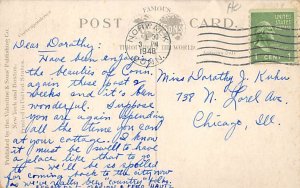 FAMOUS
POST CARD
1948
1 CENT 1
Dear Dorothy:
Have been enjoying
the beauties of Conn.
again these past 2
weeks and it's been
wonderful. Suppose
you are again spending
all the time you can
at your cottage. I know
it must be swell to have
a place like that to go
to
we'll be so spoiled
for coming back to the city now
for we're really being country
Miss Dorothy J. Kuhn
738 N. Lorel Ave.
Chicago, Ill.